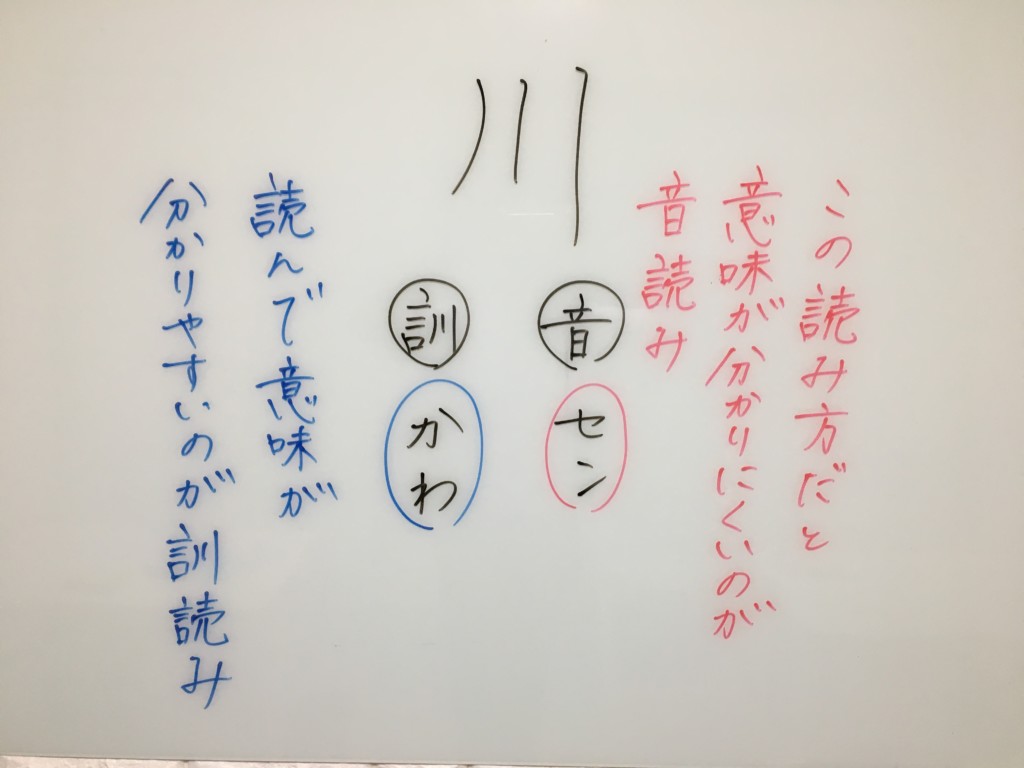 川
この読み方だと
意味が分かりにくいのが
音読み
音
セン
訓
かわ
読んで意味が
分かりやすいのが訓読み